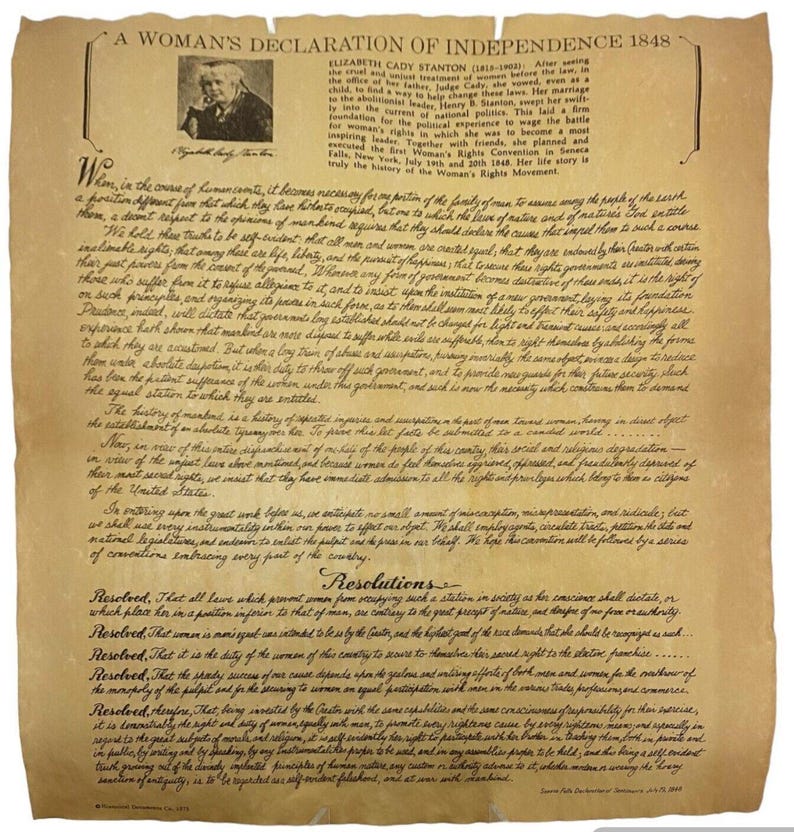 A WOMAN'S DECLARATION OF INDEPENDENCE 1848
ELIZABETH CADY STANTON (1815-1902): After seeing
the cruel and unjust treatment of women before the law, in
the office of her father, Judge Cady, she vowed, even as a
child, to find a way to help change these laws. Her marriage
to the abolitionist leader, Henry B. Stanton, swept her swift-
ly into the current of national politics. This laid a firm
foundation for the political experience to wage the battle
for woman's rights in which she was to become a most
inspiring leader. Together with friends, she planned and
executed the first Woman's Rights Convention in Seneca
Falls, New York, July 19th and 20th 1848. Her life story is
truly the history of the Woman's Rights Movement.
Elizabeth Cady Stanton
When, in the course of human events, it becomes necessary for one portion of the family of man to assume among the people of the earth
a position different from that which they have hitherto occupied, but one to which the laws of nature and of nature's God entitle
them, a decent respect to the opinions of mankind requires that they should declare the causes that impel them to such a course.
We hold these truths to be self-evident: that all men and women are created equal; that they are endowed by their Creator with certain
inalienable rights; that among these are life, liberty, and the pursuit of happiness; that to secure these rights governments are instituted, deriving
their just powers from the consent of the governed, Whenever any form of government becomes destructive of these ends, it is the right of
those who suffer from it to refuse allegiance to it, and to insist upon the institution of a new government, laying its foundation
on such principles, and organizing its powers in such form, as to them shall seem most likely to effect their safety and happiness.
Prudence, indeed, will dictate that governments long established should not be changed for light and transient causes; and accordingly all
experience hath shown that mankind are more disposed to suffer while evils are sufferable, than to right themselves by abolishing the forms
to which they are accustomed. But when a long train of abuses and usurpations, pursuing invariably the same object, evinces a design to reduce
them under absolute despotism, it is their duty to throw off such government, and to provide new guards for their future security. Such
has been the patient sufferance of the women under this government, and such is now the necessity which constrains them to demand
the equal station to which they are entitled.
The history of mankind is a history of repeated injuries and usurpations on the part of man toward woman, having in direct object
the establishment of an absolute tyranny over her. To prove this let facts be submitted to a candid world .........
Now, in view of this entire disfranchisement of one-half of the people of this country, their social and religious degradation —
in view of the unjust laws above mentioned, and because women do feel themselves aggrieved, oppressed, and fraudulently deprived of
their most sacred rights, we insist that they have immediate admission to all the rights and privileges which belong to them as citizens
of the United States.
In entering upon the great work before us, we anticipate no small amount of misconception, misrepresentation, and ridicule; but
we shall use every instrumentality within our power to effect our object. We shall employ agents, circulate tracts, petition the state and
national legislatures, and endeavor to enlist the pulpit and the press in our behalf. We hope this convention will be followed by a series
of conventions embracing every part of the country.
Resolutions
Resolved, That all laws which prevent women from occupying such a station in society as her conscience shall dictate, or
which place her in a position inferior to that of man, are contrary to the great precept of nature, and therefore of no force or authority.
Resolved, That woman is man's equal - was intended to be so by the Creator, and the highest good of the race demands that she should be recognized as such...
Resolved, That it is the duty of the women of this country to secure to themselves their sacred right to the elective franchise ......
Resolved, That the speedy success of our cause depends upon the zealous and untiring efforts of both men and women, for the overthrow of
the monopoly of the pulpit and for the securing to women an equal participation with men in the various trades, professions, and commerce.
Resolved, therefore, That, being invested by the Creator with the same capabilities, and the same consciousness of responsibility for their exercise,
it is demonstrably the right and duty of woman, equally with man, to promote every righteous cause by every righteous means; and especially in
regard to the great subjects of morals and religion, it is self-evidently her right to participate with her brother in teaching them, both in private and
in public, by writing and by speaking, by any instrumentalities proper to be used, and in any assemblies proper to be held; and this being a self-evident
truth growing out of the divinely implanted principles of human nature, any custom or authority adverse to it, whether modern or wearing the hoary
sanction of antiquity, is to be regarded as a self-evident falsehood, and at war with mankind.
Seneca Falls Declaration of Sentiments July 19, 1848
© Historical Documents Co., 1975